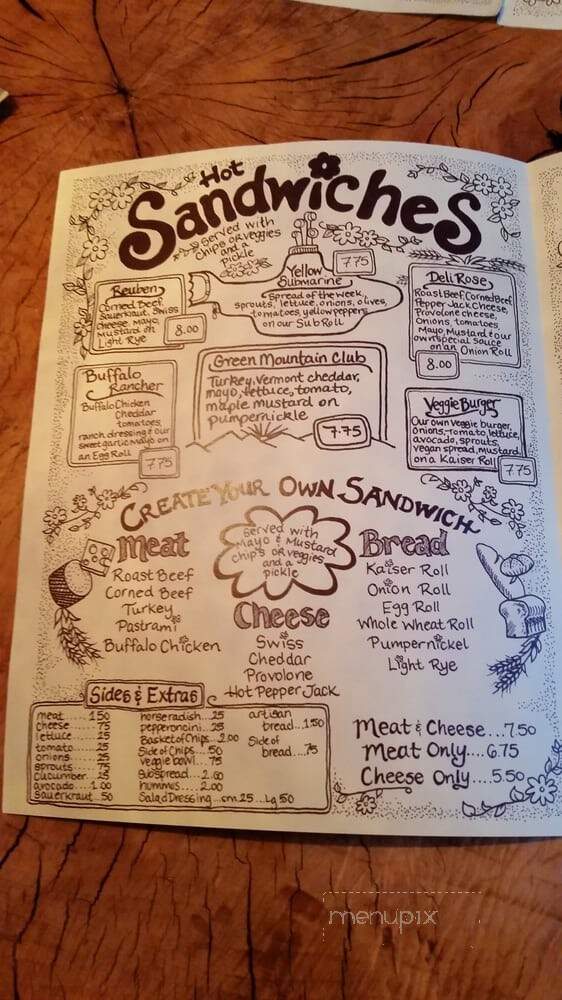 Hot
Sandwiches
Served with
chips OR veggies
and a
pickle
Reuben
Corned Beef,
Sauerkraut, Swiss
cheese, Mayo,
Mustard on
Light Rye
8.00
Yellow
Submarine
7.75
Spread of the week,
sprouts, lettuce, onions, olives,
tomatoes, yellow peppers
on our Sub Roll
Deli Rose
Roast Beef, Corned Beef
Pepper Jack Cheese,
Provolone cheese,
Onions, tomatoes,
Mayo, Mustard & our
own special sauce
on an Onion Roll
8.00
Buffalo
Rancher
Buffalo Chicken
Cheddar
tomatoes,
ranch dressing & our
sweet garlic mayo on
an Egg Roll
7.75
Green Mountain Club
Turkey, Vermont cheddar,
mayo, lettuce, tomato,
maple mustard on
pumpernickle
7.75
Veggie Burger
Our own veggie burger,
onions, tomato, lettuce,
avocado, sprouts,
vegan spread, mustard
on a Kaiser Roll
7.75
Create Your Own Sandwich
Served with
Mayo & Mustard
chips OR veggies
and a
pickle
Meat
Roast Beef
Corned Beef
Turkey
Pastrami
Buffalo Chicken
Cheese
Swiss
Cheddar
Provolone
Hot Pepper Jack
Bread
Kaiser Roll
Onion Roll
Egg Roll
Whole Wheat Roll
Pumpernickel
Light Rye
Sides & Extras
meat.....1.50
cheese.....75
lettuce.....25
tomato.....25
onions.....25
sprouts.....75
cucumber.....25
avocado...1.00
sauerkraut .50
horseradish...25
pepperoncini...25
Basket of Chips...2.00
Side of Chips...50
veggie bowl...75
Sub Spread....2.00
hummus....2.00
Salad Dressing...sm.25...Lg.50
artisan
bread...1.50
Side of
bread...75
Meat & Cheese...7.50
Meat Only....6.75
Cheese Only....5.50
menupix